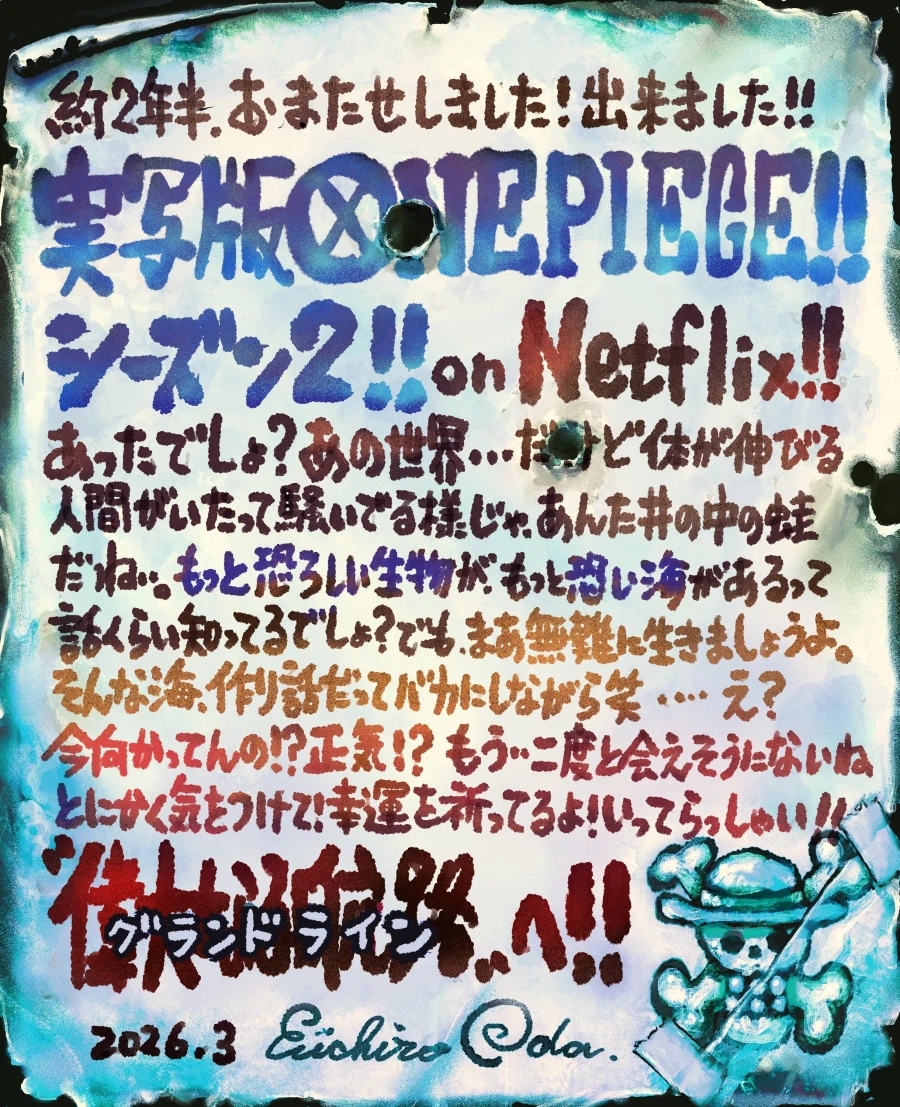 約2年半、おまたせしました!出来ました!!
実写版ONE PIECE!!
シーズン2!! on Netflix!!
あったでしょ?あの世界…だけど体が伸びる
人間がいたって騒いでる様じゃ、あんた井の中の蛙
だわね…。もっと恐ろしい生物が、もっと恐しい海があるって
話くらい知ってるでしょ?でも、まあ無難に生きましょうよ。
そんな海、作り話だってバカにしながら笑‥‥え?
今向かってんの!?正気!?もう…二度と会えそうにないね
とにかく気をつけて!幸運を祈ってるよ!いってらっしゃい!!
"偉大なる航路"へ!!
グランドライン
2026.3 Eiichiro Oda.